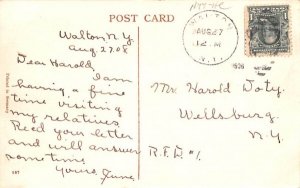 POST CARD
Walton, N.Y.
Aug 27.08
Dear Harold,
I am
having a fine
time visiting
my relatives
Recd your letter
and will answer
sometime.
Yours, June.
Printed in Germany
197
WALTON
AUG 27
12 M
N.Y.
Mr Harold Doty
Wellsburg
N.Y.
R.F.D. #1.